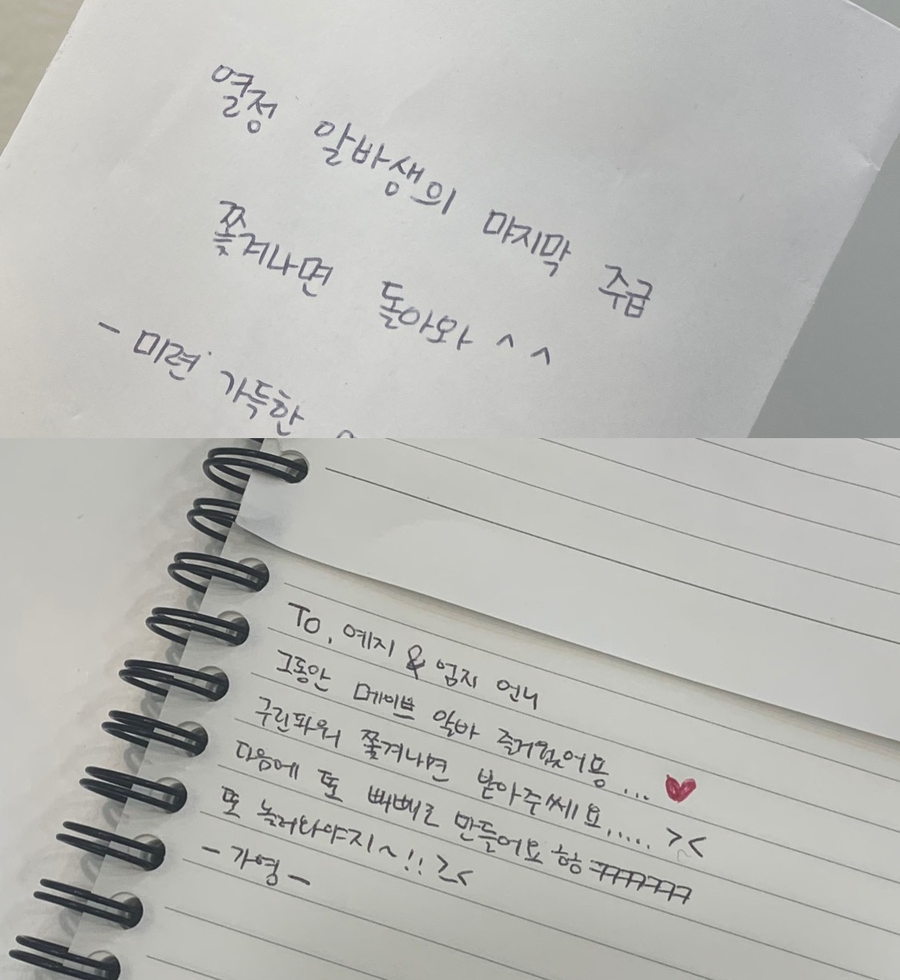 열정 알바생의 마지막 주급
쫓겨나면 돌아와 ^^
- 미련 가득한
TO. 예지 & 엄지 언니
그동안 메이브 알바 즐거웠어용... ♥
구린파워 쫓겨나면 받아주쎄요.... ><
다음에 또 빼빼로 만들어요 항 ㅋㅋㅋㅋㅋㅋ
또 놀러와야지~!! >_<
- 가영 -